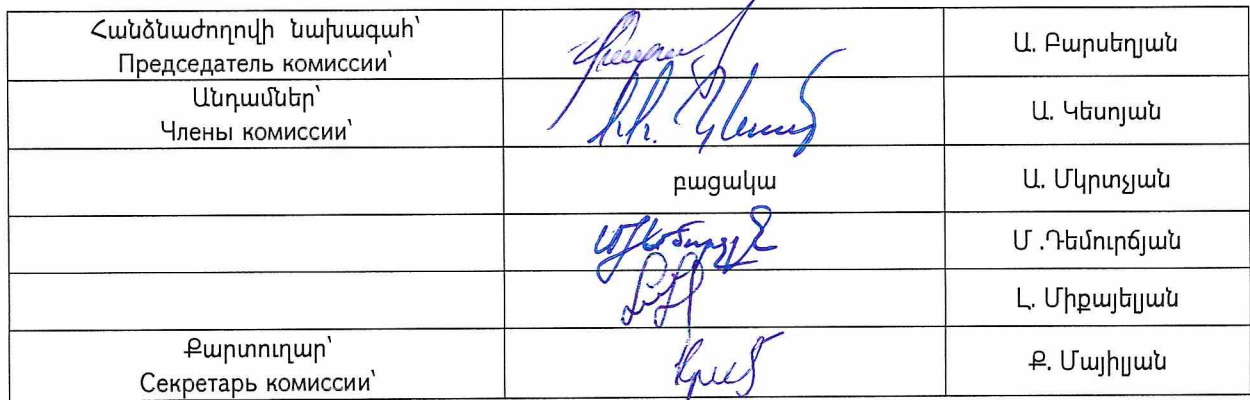 Հանձնաժողովի նախագահ՝
Председатель комиссии՝
Ա. Բարսեղյան
Անդամներ՝
Члены комиссии՝
Ա. Կեսոյան
բացակա
Ա. Մկրտչյան
Մ .Դեմուրճյան
Լ. Միքայելյան
Քարտուղար՝
Секретарь комиссии՝
Ք. Մայիլյան